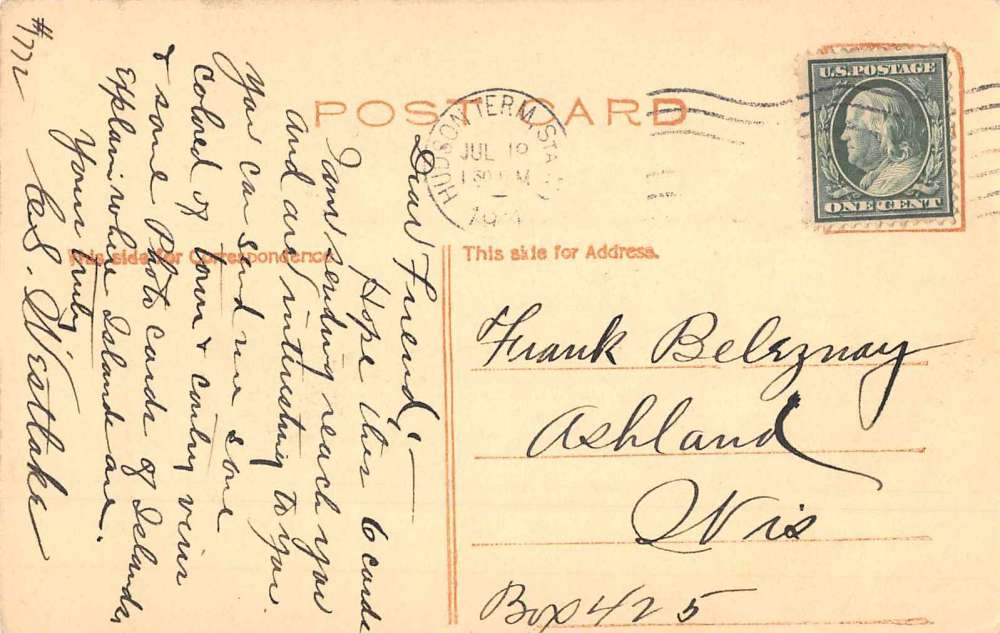 #772
POST CARD
HUDSON TERM. STA.
JUL 19
U.S. POSTAGE
ONE CENT
This side for Correspondence
This side for Address.
Dear Friend!—
Hope this 6 cards
I am sending reach you
and are intresting to you.
You can send me some
colored of town & contry views
& some Photo cards of Islands,
Explain where Islands are.
Yours truly
Westlake
Frank Beleznay
Ashland
Wis
Box 425